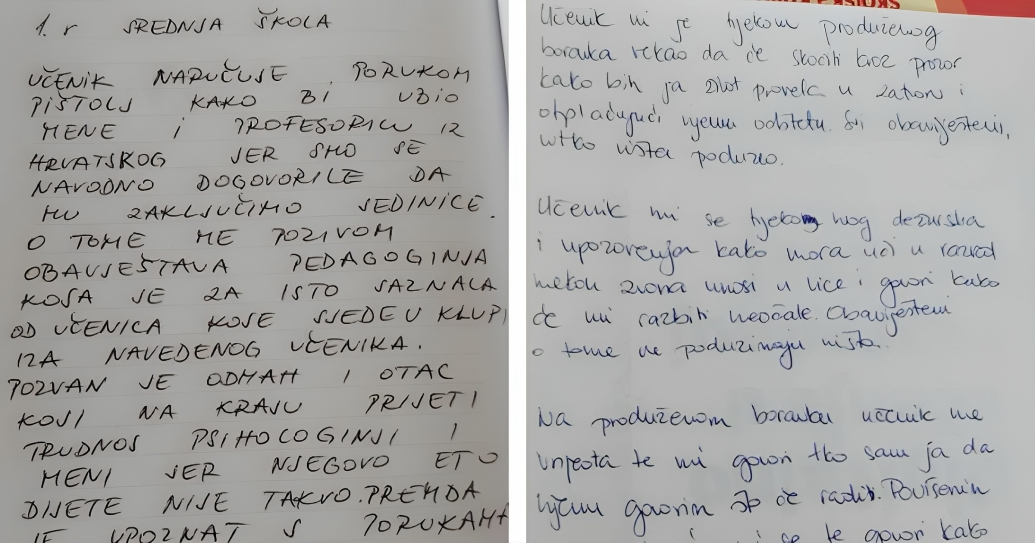 1. r SREDNJA ŠKOLA
UČENIK NARUČUJE PORUKOM
PIŠTOLJ KAKO BI UBIO
MENE I PROFESORICU IZ
HRVATSKOG JER SMO SE
NAVODNO DOGOVORILE DA
MU ZAKLJUČIMO JEDINICE.
O TOME ME POZIVOM
OBAVJEŠTAVA PEDAGOGINJA
KOJA JE ZA ISTO SAZNALA
OD UČENICA KOJE SJEDE U KLUPI
IZA NAVEDENOG UČENIKA.
POZVAN JE ODMAH I OTAC
KOJI NA KRAJU PRIJETI
TRUDNOJ PSIHOLOGINJI I
MENI JER NJEGOVO ETO
DIJETE NIJE TAKVO. PREMDA
JE UPOZNAT S PORUKAMA
Učenik mi je tijekom produženog
boravka rekao da će skočiti kroz prozor
kako bih ja život provela u zatvoru i
otplaćujući njemu odštetu. Svi obaviješteni,
nitko ništa poduzeo.
Učenik mi se tijekom mog dežurstva
i upozorenja kako mora ući u razred
nakon zvona unosi u lice i govori kako
će mi razbiti naočale. Obaviješteni
o tome ne poduzimaju ništa.
Na produženom boravku učenik me
vrijeđa te mi govori tko sam ja da
njemu govorim što će raditi. Povišenim
se te govori kako